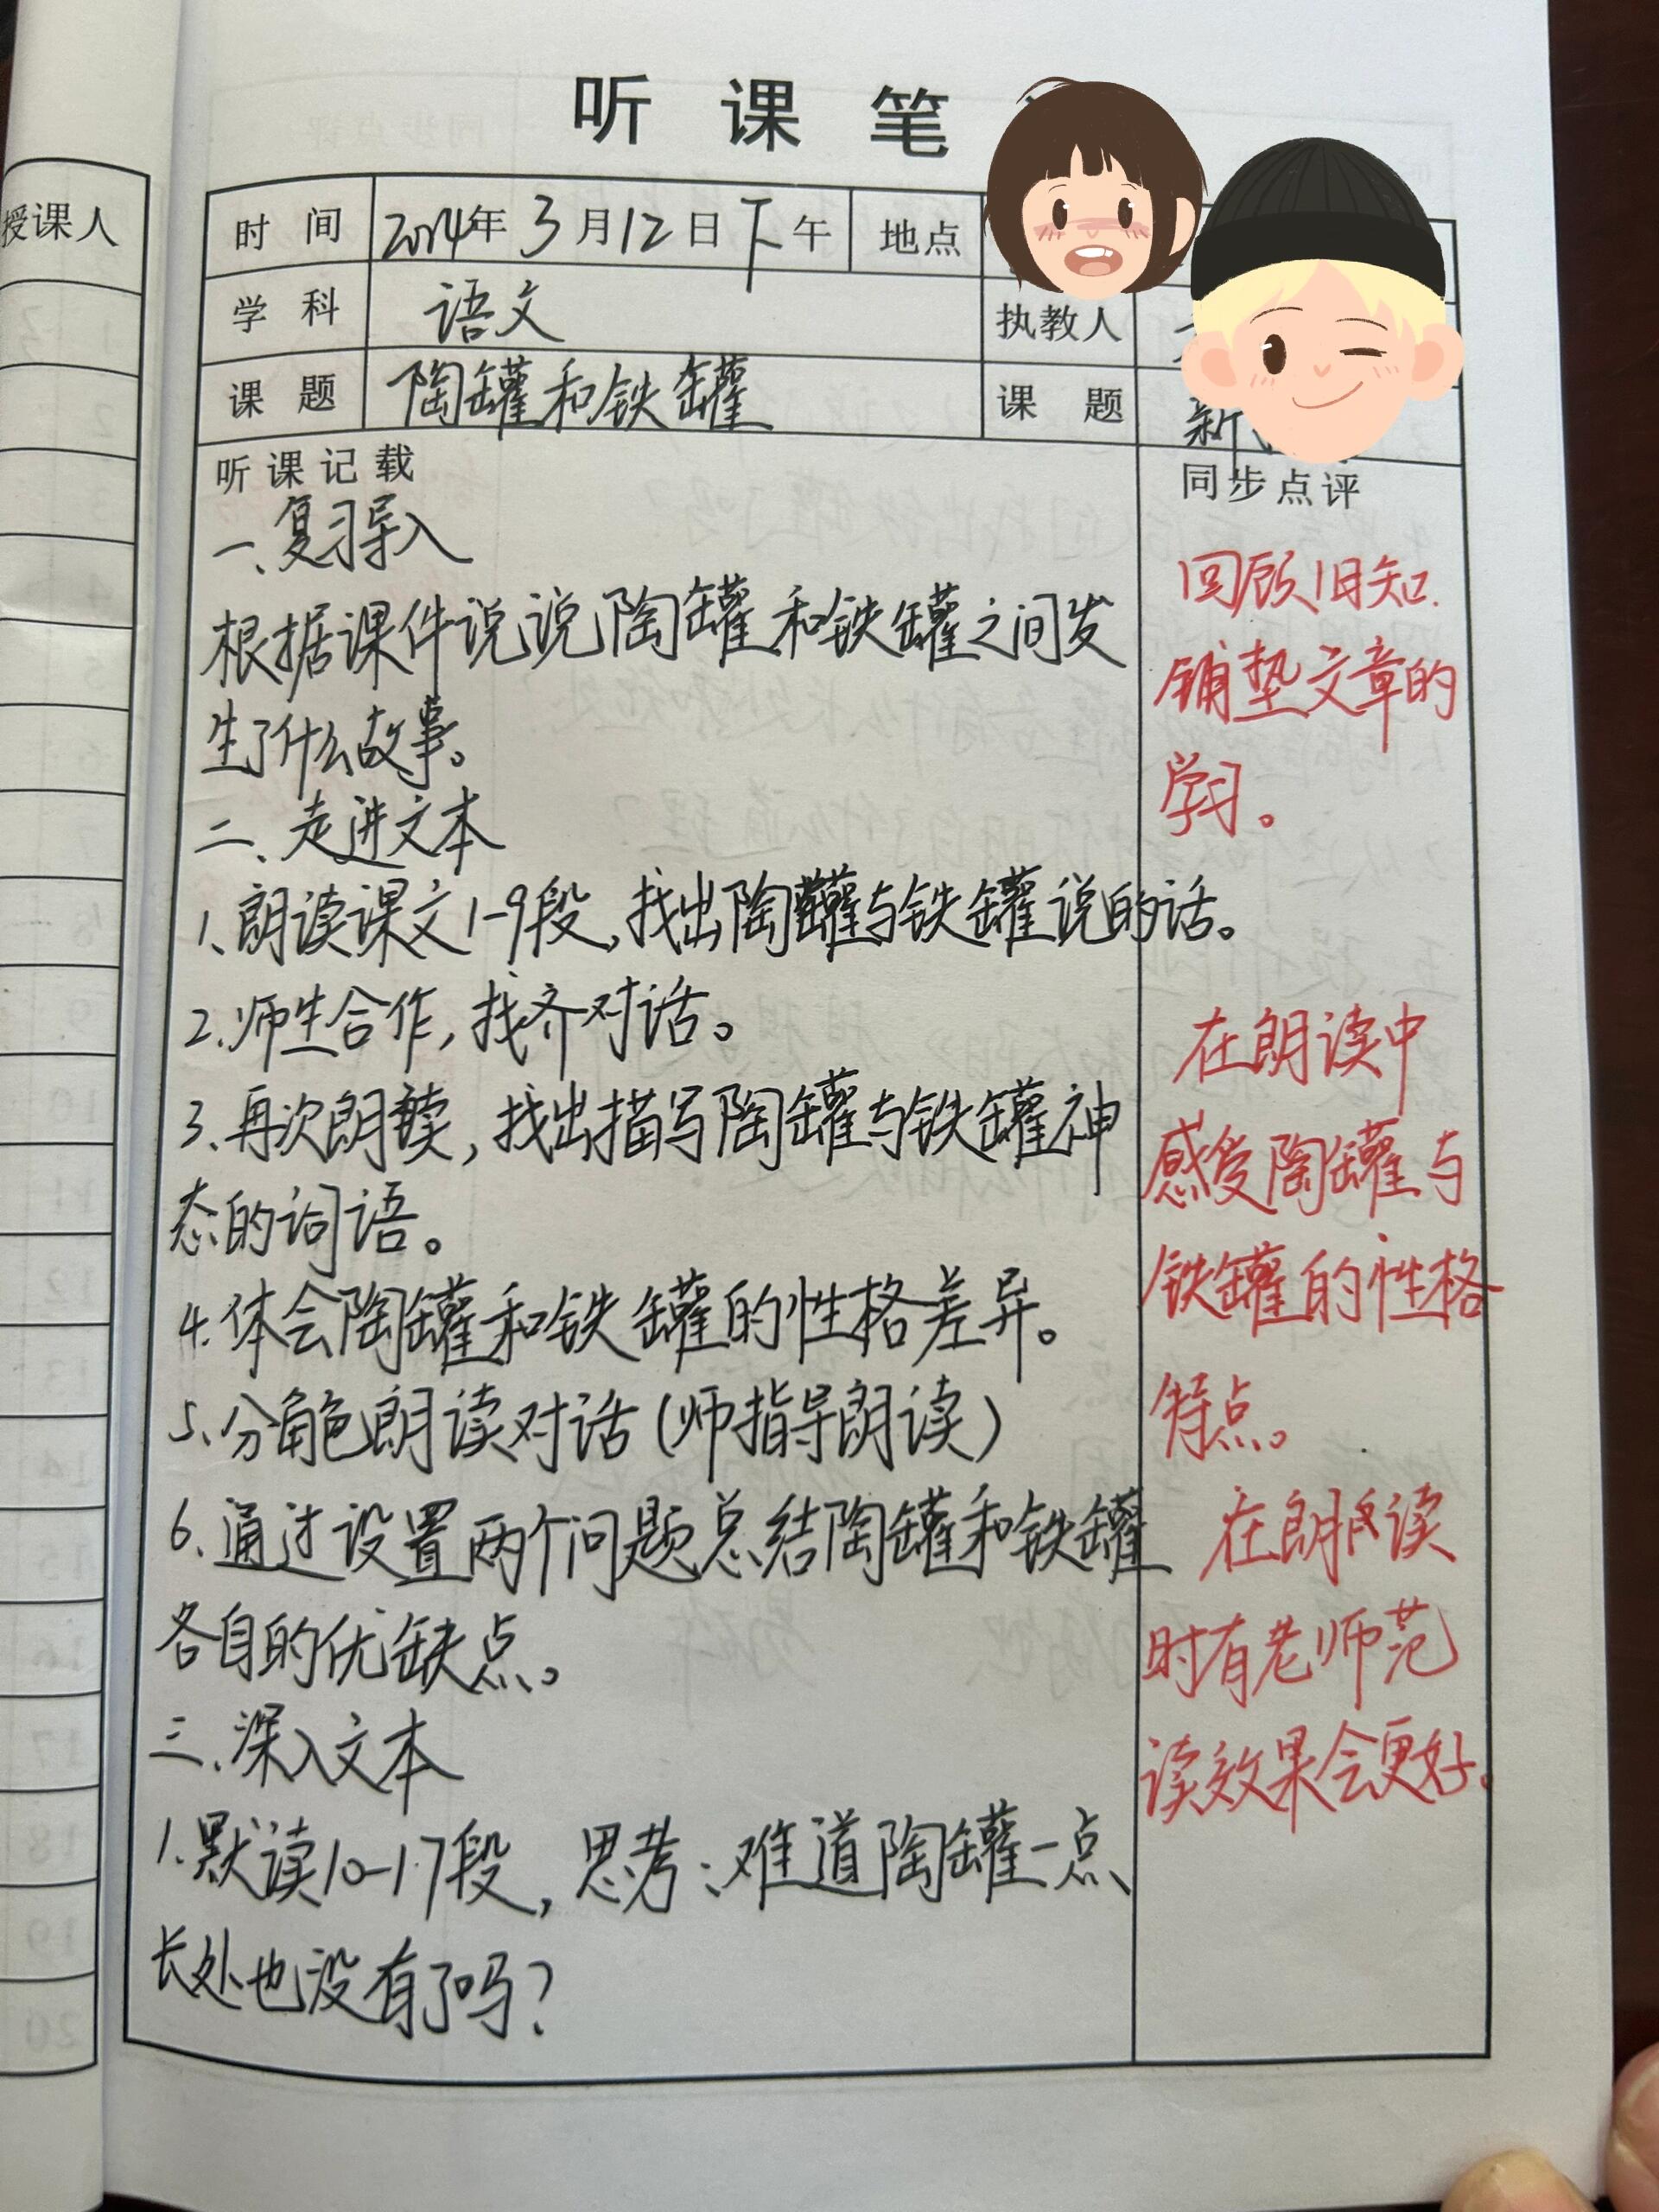 听课笔
授课人
时间 2024年3月12日下午 地点
学科 语文 执教人
课题 陶罐和铁罐 课题 新
听课记载
一、复习导入
根据课件说说陶罐和铁罐之间发
生了什么故事。
二、走进文本
1、朗读课文1-9段,找出陶罐与铁罐说的话。
2.师生合作,找齐对话。
3.再次朗读,找出描写陶罐与铁罐神
态的词语。
4.体会陶罐和铁罐的性格差异。
5、分角色朗读对话(师指导朗读)
6、通过设置两个问题总结陶罐和铁罐
各自的优缺点。
三、深入文本
1.默读10-17段,思考:难道陶罐一点
长处也没有了吗?
同步点评
回顾旧知.
铺垫文章的
学习。
在朗读中
感受陶罐与
铁罐的性格
特点。
在朗读
时有老师范
读效果会更好。